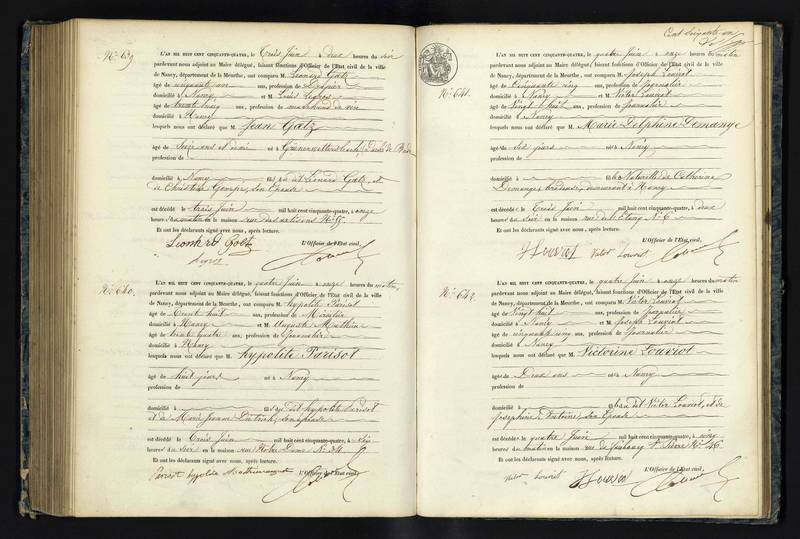 N° 639.
L'AN MIL HUIT CENT CINQUANTE-QUATRE, le Trois Juin à deux heures du soir
pardevant nous adjoint au Maire délégué, faisant fonctions d'Officier de l'État civil de la ville
de Nancy, département de la Meurthe, ont comparu M. Léonard Gatz
âgé de cinquante ans, profession de
domicilié à Nancy et M. Louis Legros
âgé de trente cinq ans, profession de marchand de vin
domicilié à Nancy
lesquels nous ont déclaré que M. Jean Gatz
âgé de Seize ans et demi né à Grünwettersbach, Duché de Bade
profession de
domicilié à Nancy fils de dit Léonard Gatz, et
de Christine Gempf, son Epouse
est décédé le trois Juin mil huit cent cinquante-quatre, à onze
heures du matin en la maison rue des artisans N°
Et ont les déclarants signé avec nous, après lecture.
L'Officier de l'État civil,
Leonhard Golz
Legros
N° 640.
L'AN MIL HUIT CENT CINQUANTE-QUATRE, le quatre Juin à onze heures du matin
pardevant nous adjoint au Maire délégué, faisant fonctions d'Officier de l'État civil de la ville
de Nancy, département de la Meurthe, ont comparu M. hypolite Parisot
âgé de Trente huit ans, profession de Menuisier
domicilié à Nancy et M. Auguste Mathieu
âgé de trente quatre ans, profession de Journalier
domicilié à Nancy
lesquels nous ont déclaré que M. hypolite Parisot
âgé de huit jours né à Nancy
profession de
domicilié à fils du dit hypolite Parisot
et de Marie Jeanne son Epouse
est décédé le Trois Juin mil huit cent cinquante-quatre, à six
heures du soir en la maison rue Notre Dame N° 34
Et ont les déclarants signé avec nous, après lecture.
L'Officier de l'État civil,
Parisot hypolite
Cent soixante un
N° 641.
L'AN MIL HUIT CENT CINQUANTE-QUATRE, le quatre Juin à onze heures du matin
pardevant nous adjoint au Maire délégué, faisant fonctions d'Officier de l'État civil de la ville
de Nancy, département de la Meurthe, ont comparu M. Joseph Louviot
âgé de Cinquante cinq ans, profession de Journalier
domicilié à Nancy et M. Victor Louviot
âgé de Vingt huit ans, profession de Journalier
domicilié à Nancy
lesquels nous ont déclaré que M. Marie Delphine Demange
âgée de Six jours née à Nancy
profession de
domicilié à fille Naturelle de Catherine
Demange, brodeuse, demeurant à Nancy
est décédée le Trois Juin mil huit cent cinquante-quatre, à deux
heures du soir en la maison rue de l'Etang N° 6
Et ont les déclarants signé avec nous, après lecture.
L'Officier de l'État civil,
Louviot Victor Louviot
N° 642.
L'AN MIL HUIT CENT CINQUANTE-QUATRE, le quatre Juin à onze heures du matin
pardevant nous adjoint au Maire délégué, faisant fonctions d'Officier de l'État civil de la ville
de Nancy, département de la Meurthe, ont comparu M. Victor Louviot
âgé de Vingt huit ans, profession de Journalier
domicilié à Nancy et M. Joseph Louviot
âgé de cinquante cinq ans, profession de Journalier
domicilié à Nancy
lesquels nous ont déclaré que M. Victorine Louviot
âgée de Deux ans née à Nancy
profession de
domicilié à fille du dit Victor Louviot, et de
Joséphine Antoine, son Epouse
est décédée le quatre Juin mil huit cent cinquante-quatre, à cinq
heures du matin en la maison rue du faubourg St Pierre N° 46
Et ont les déclarants signé avec nous, après lecture.
L'Officier de l'État civil,
Victor Louviot Louviot